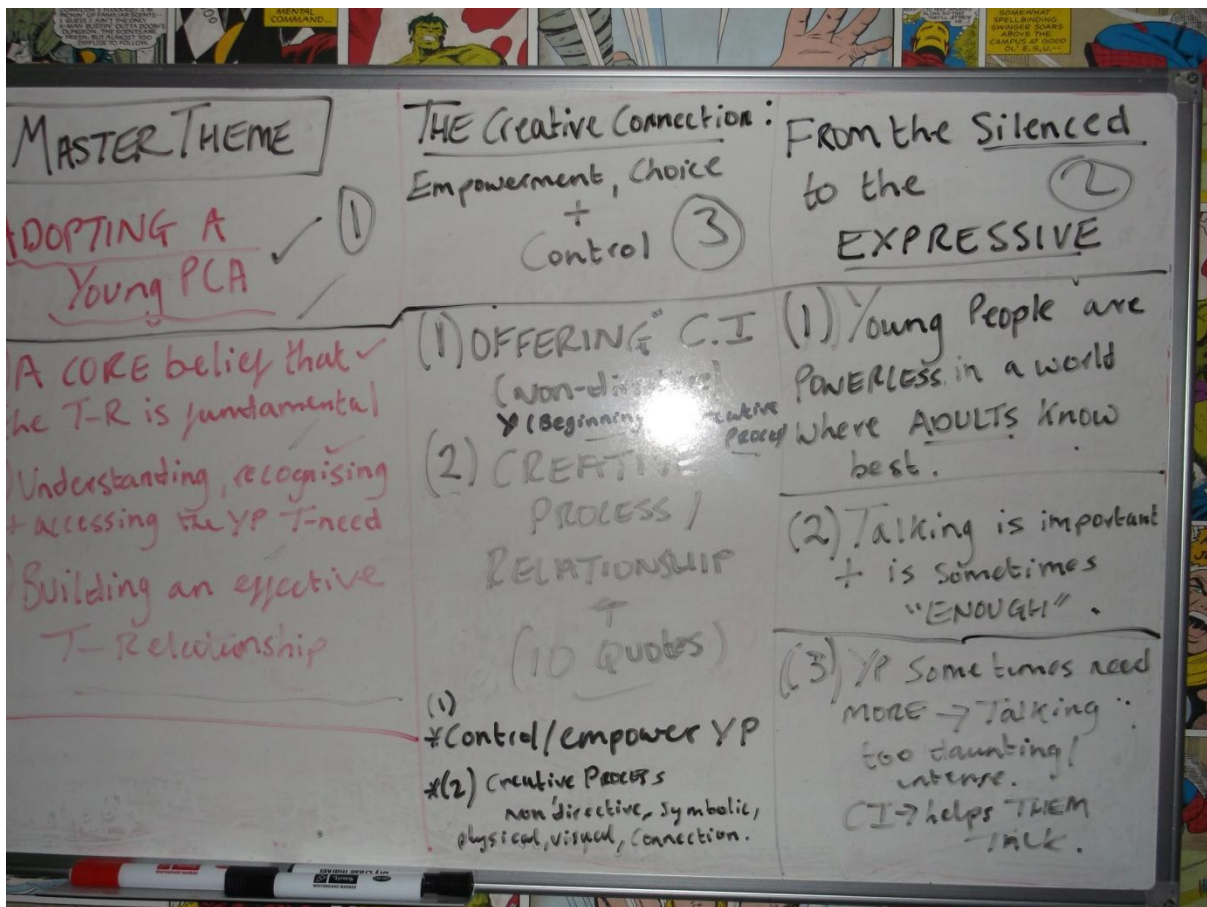 MENTAL
COMMAND...
SOMEWHAT
SPELLBINDING
SWINGER SOARS
ABOVE THE
CAMPUS AT GOOD
OL' E.S.U.--
MASTER THEME
ADOPTING A
Young PCA
1
A CORE belief that
the T-R is fundamental
Understanding, recognising
+ accessing the YP T-need
Building an effective
T-Relationship
THE Creative Connection:
Empowerment, Choice
+
Control
3
(1) OFFERING" C.I
(Non-directive)
(Beginning Creative
Process
(2) CREATIVE
PROCESS/
RELATIONSHIP
(10 QUOTES)
(1)
*Control/empower YP
*(2) Creative Process
non'directive, symbolic,
physical, visual, connection.
From the Silenced
to the
2
EXPRESSIVE
(1) Young People are
POWERLESS in a world
where ADULTS Know
best.
(2) Talking is important
+ is sometimes
"ENOUGH".
(3) YP Sometimes need
MORE → Talking
too daunting/
intense.
CI → helps THEM